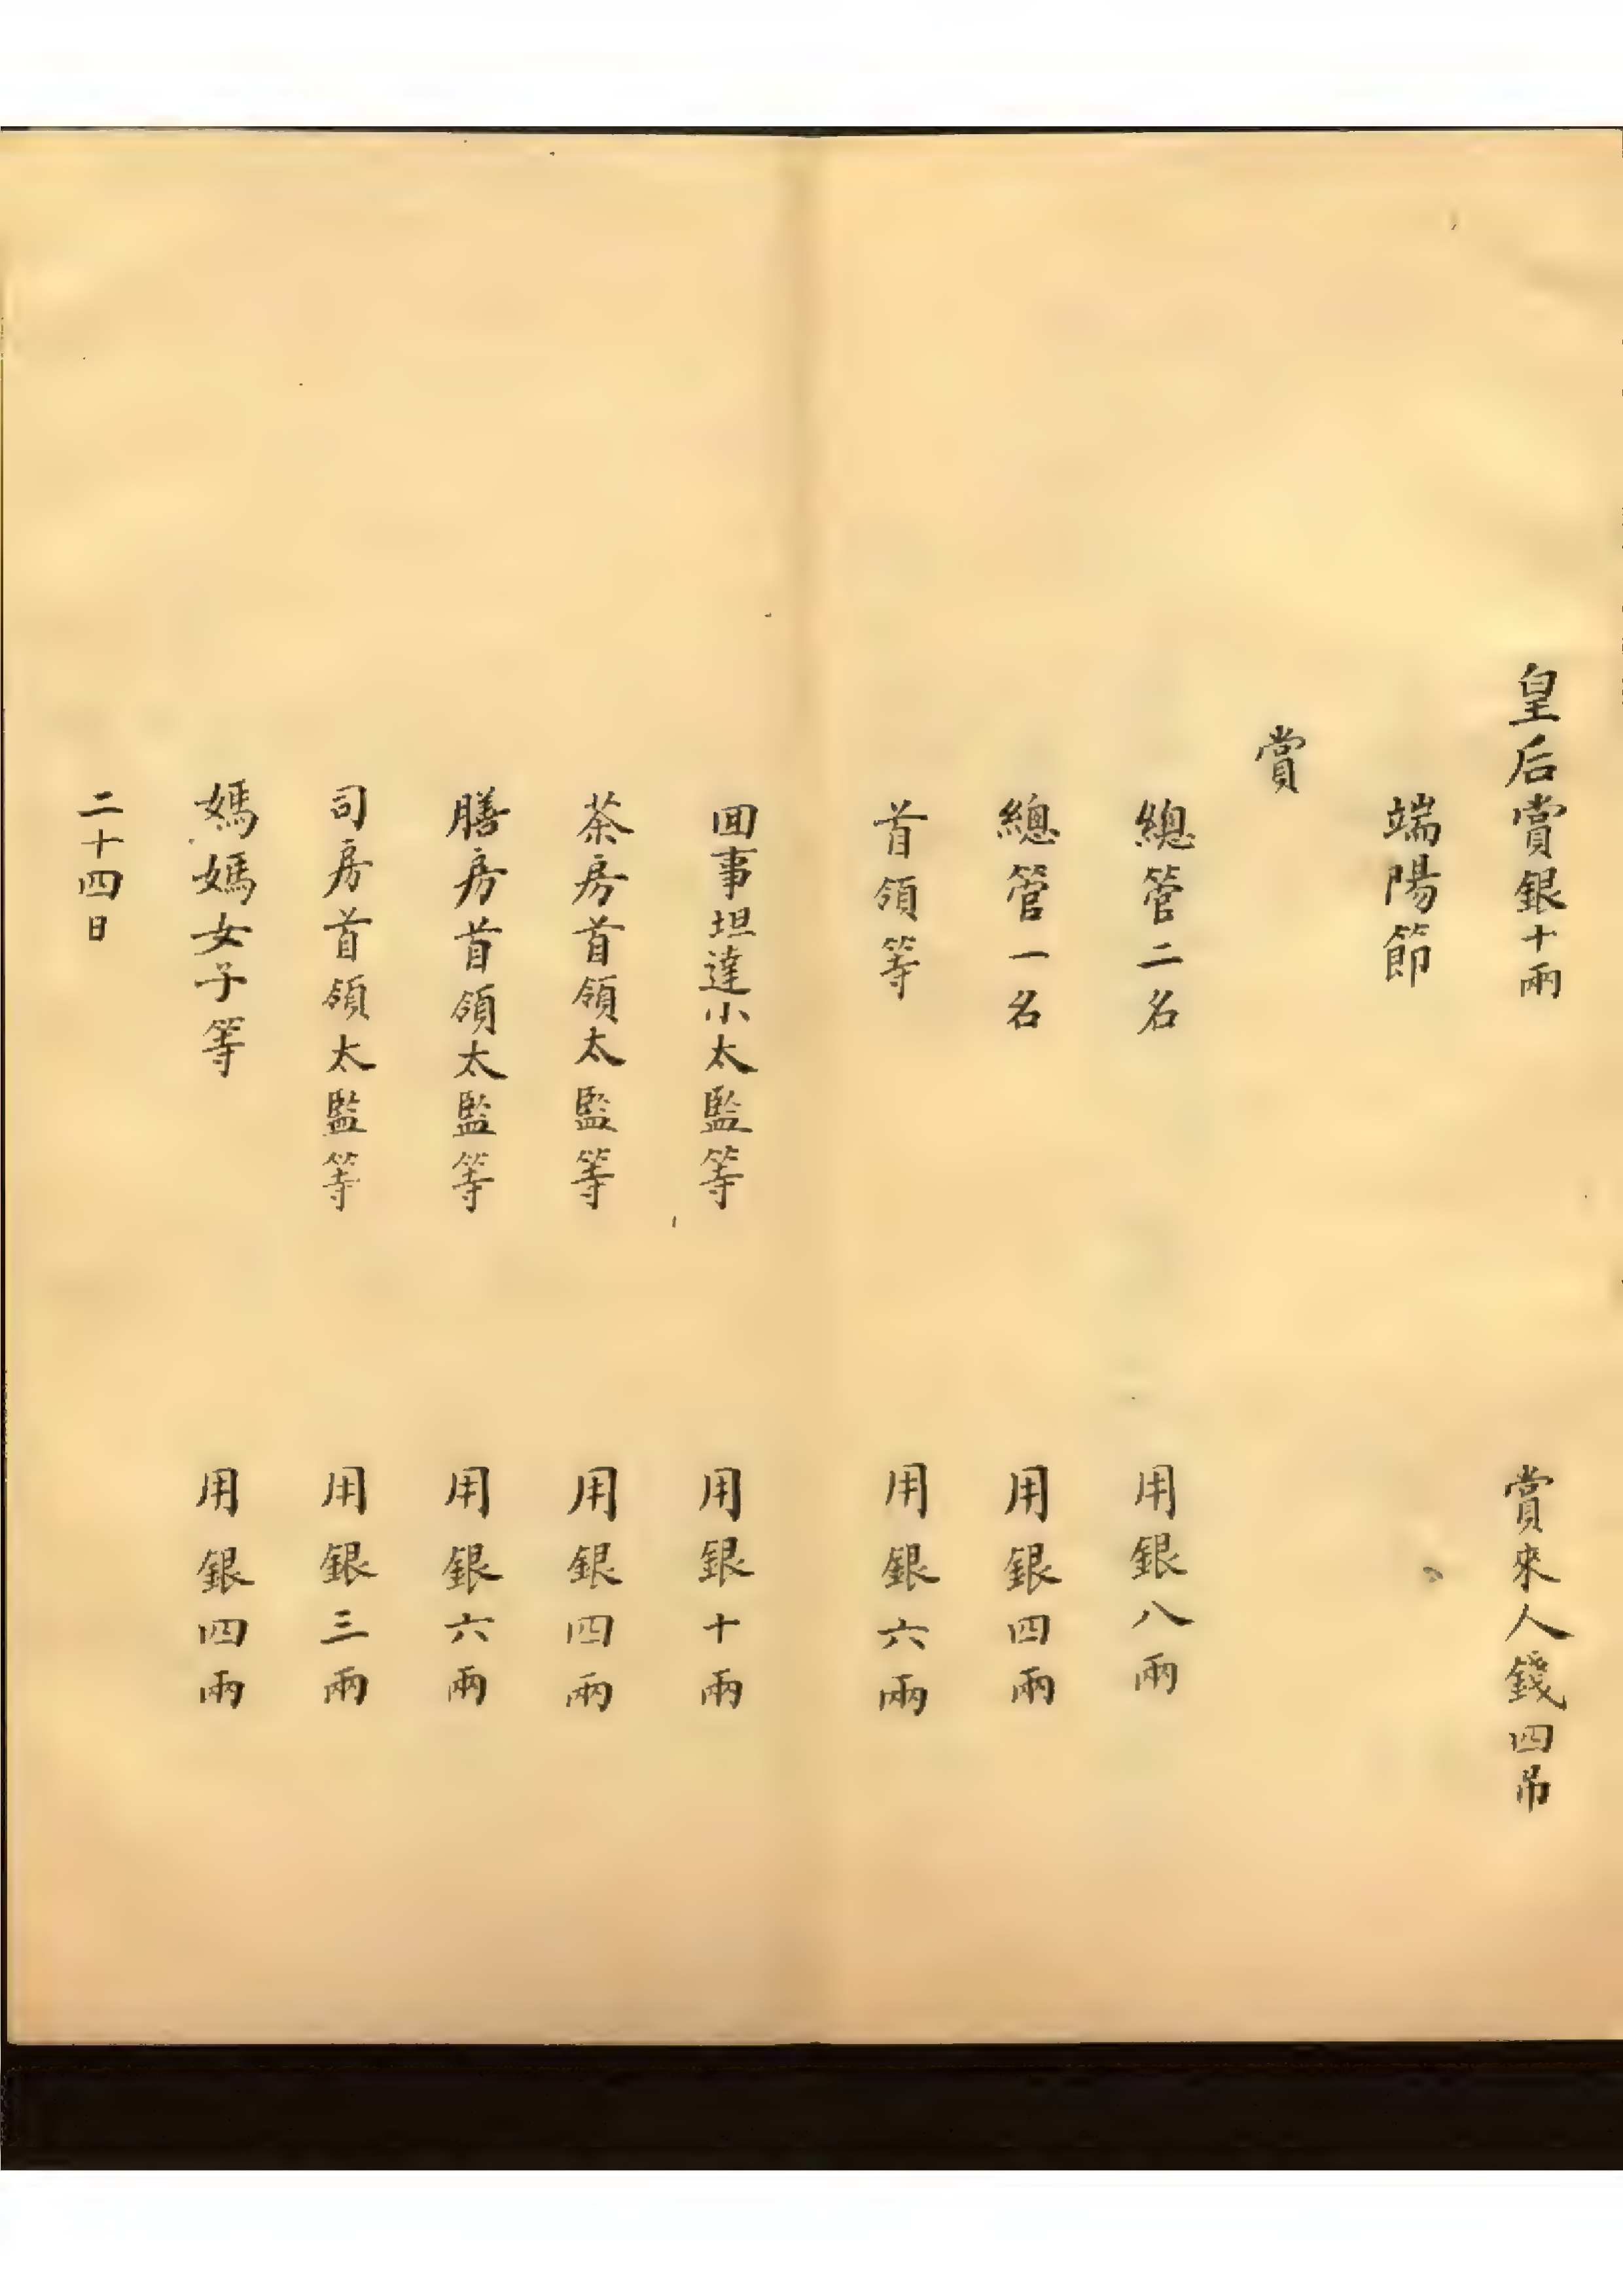 皇后賞銀十兩　賞來人錢四吊
端陽節
賞
總管二名　用銀八兩
總管一名　用銀四兩
首領等　用銀六兩
回事坦達小太監等　用銀十兩
茶房首領太監等　用銀四兩
膳房首領太監等　用銀六兩
司房首領太監等　用銀三兩
媽媽女子等　用銀四兩
二十四日